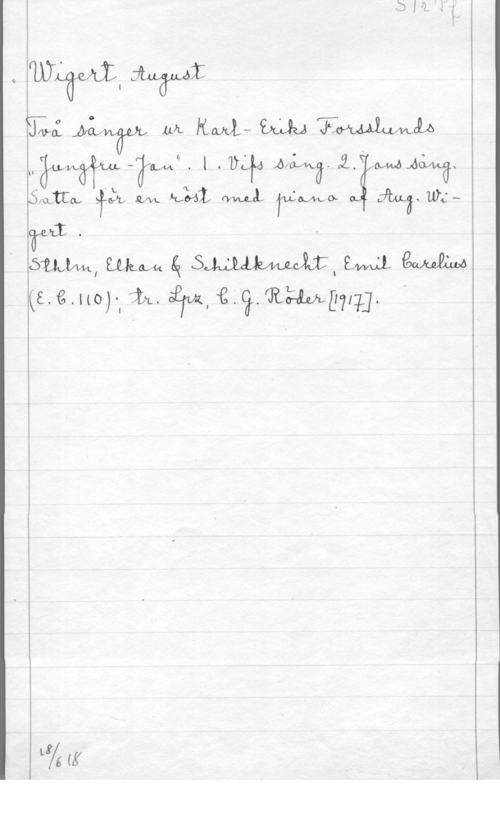 Wigert, August
Två sånger ur Karl-Eriks Forsslunds
"Jungfru-Jan". 1. Vifs sång. 2. Jans sång.
Satta för en röst med piano af Aug. Wi-
gert.
Sthlm, Elkan & Schildknecht, Emil Carelius
(E.C.110); tr. Lpz, C.G. Röder [1917].
18/6 18